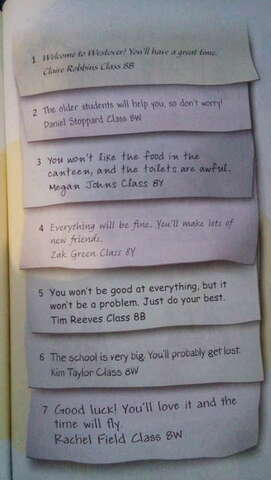 1 Welcome to Westover! You'll have a great time.
Claire Robbins Class 8B
2 The older students will help you, so don't worry!
Daniel Stoppard Class 8W
3 You won't like the food in the
canteen, and the toilets are awful.
Megan Johns Class 8Y
4 Everything will be fine. You'll make lots of
new friends.
Zak Green Class 8Y
5 You won't be good at everything, but it
won't be a problem. Just do your best.
Tim Reeves Class 8B
6 The school is very big. You'll probably get lost.
Kim Taylor Class 8W
7 Good luck! You'll love it and the
time will fly.
Rachel Field Class 8W